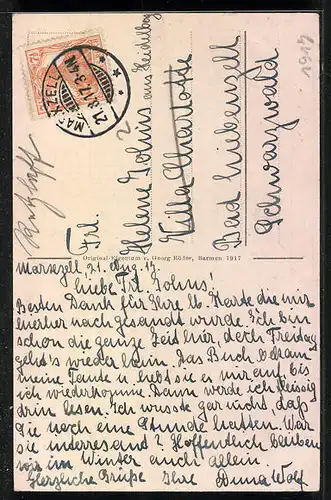 MARXZELL
21.8.17.3-4N
1917
Frl.
Helene Johns aus Heidelberg
Villa Charlotte
Bad Liebenzell
Schwarzwald
Original-Eigentum v. Georg Müller, Barmen 1917
Marxzell, 21. Aug. 17.
Liebe Frl. Johns,
Besten Dank für Ihre lb. Karte die mir
hierher nach gesandt wurde. Ich bin
schon die ganze Zeit hier, doch Freitag
geht's wieder heim. Das Buch bekam
meine Tante u. hebt sie es mir auf, bis
ich wiederkomme. Dann werde ich fleissig
drin lesen. Ich wusste gar nicht, daß
Sie noch eine Stunde hatten. War
sie interessant? Hoffendlich bleiben
wir im Winter auch allein.
Herzliche Grüße Ihre Anna Wolf